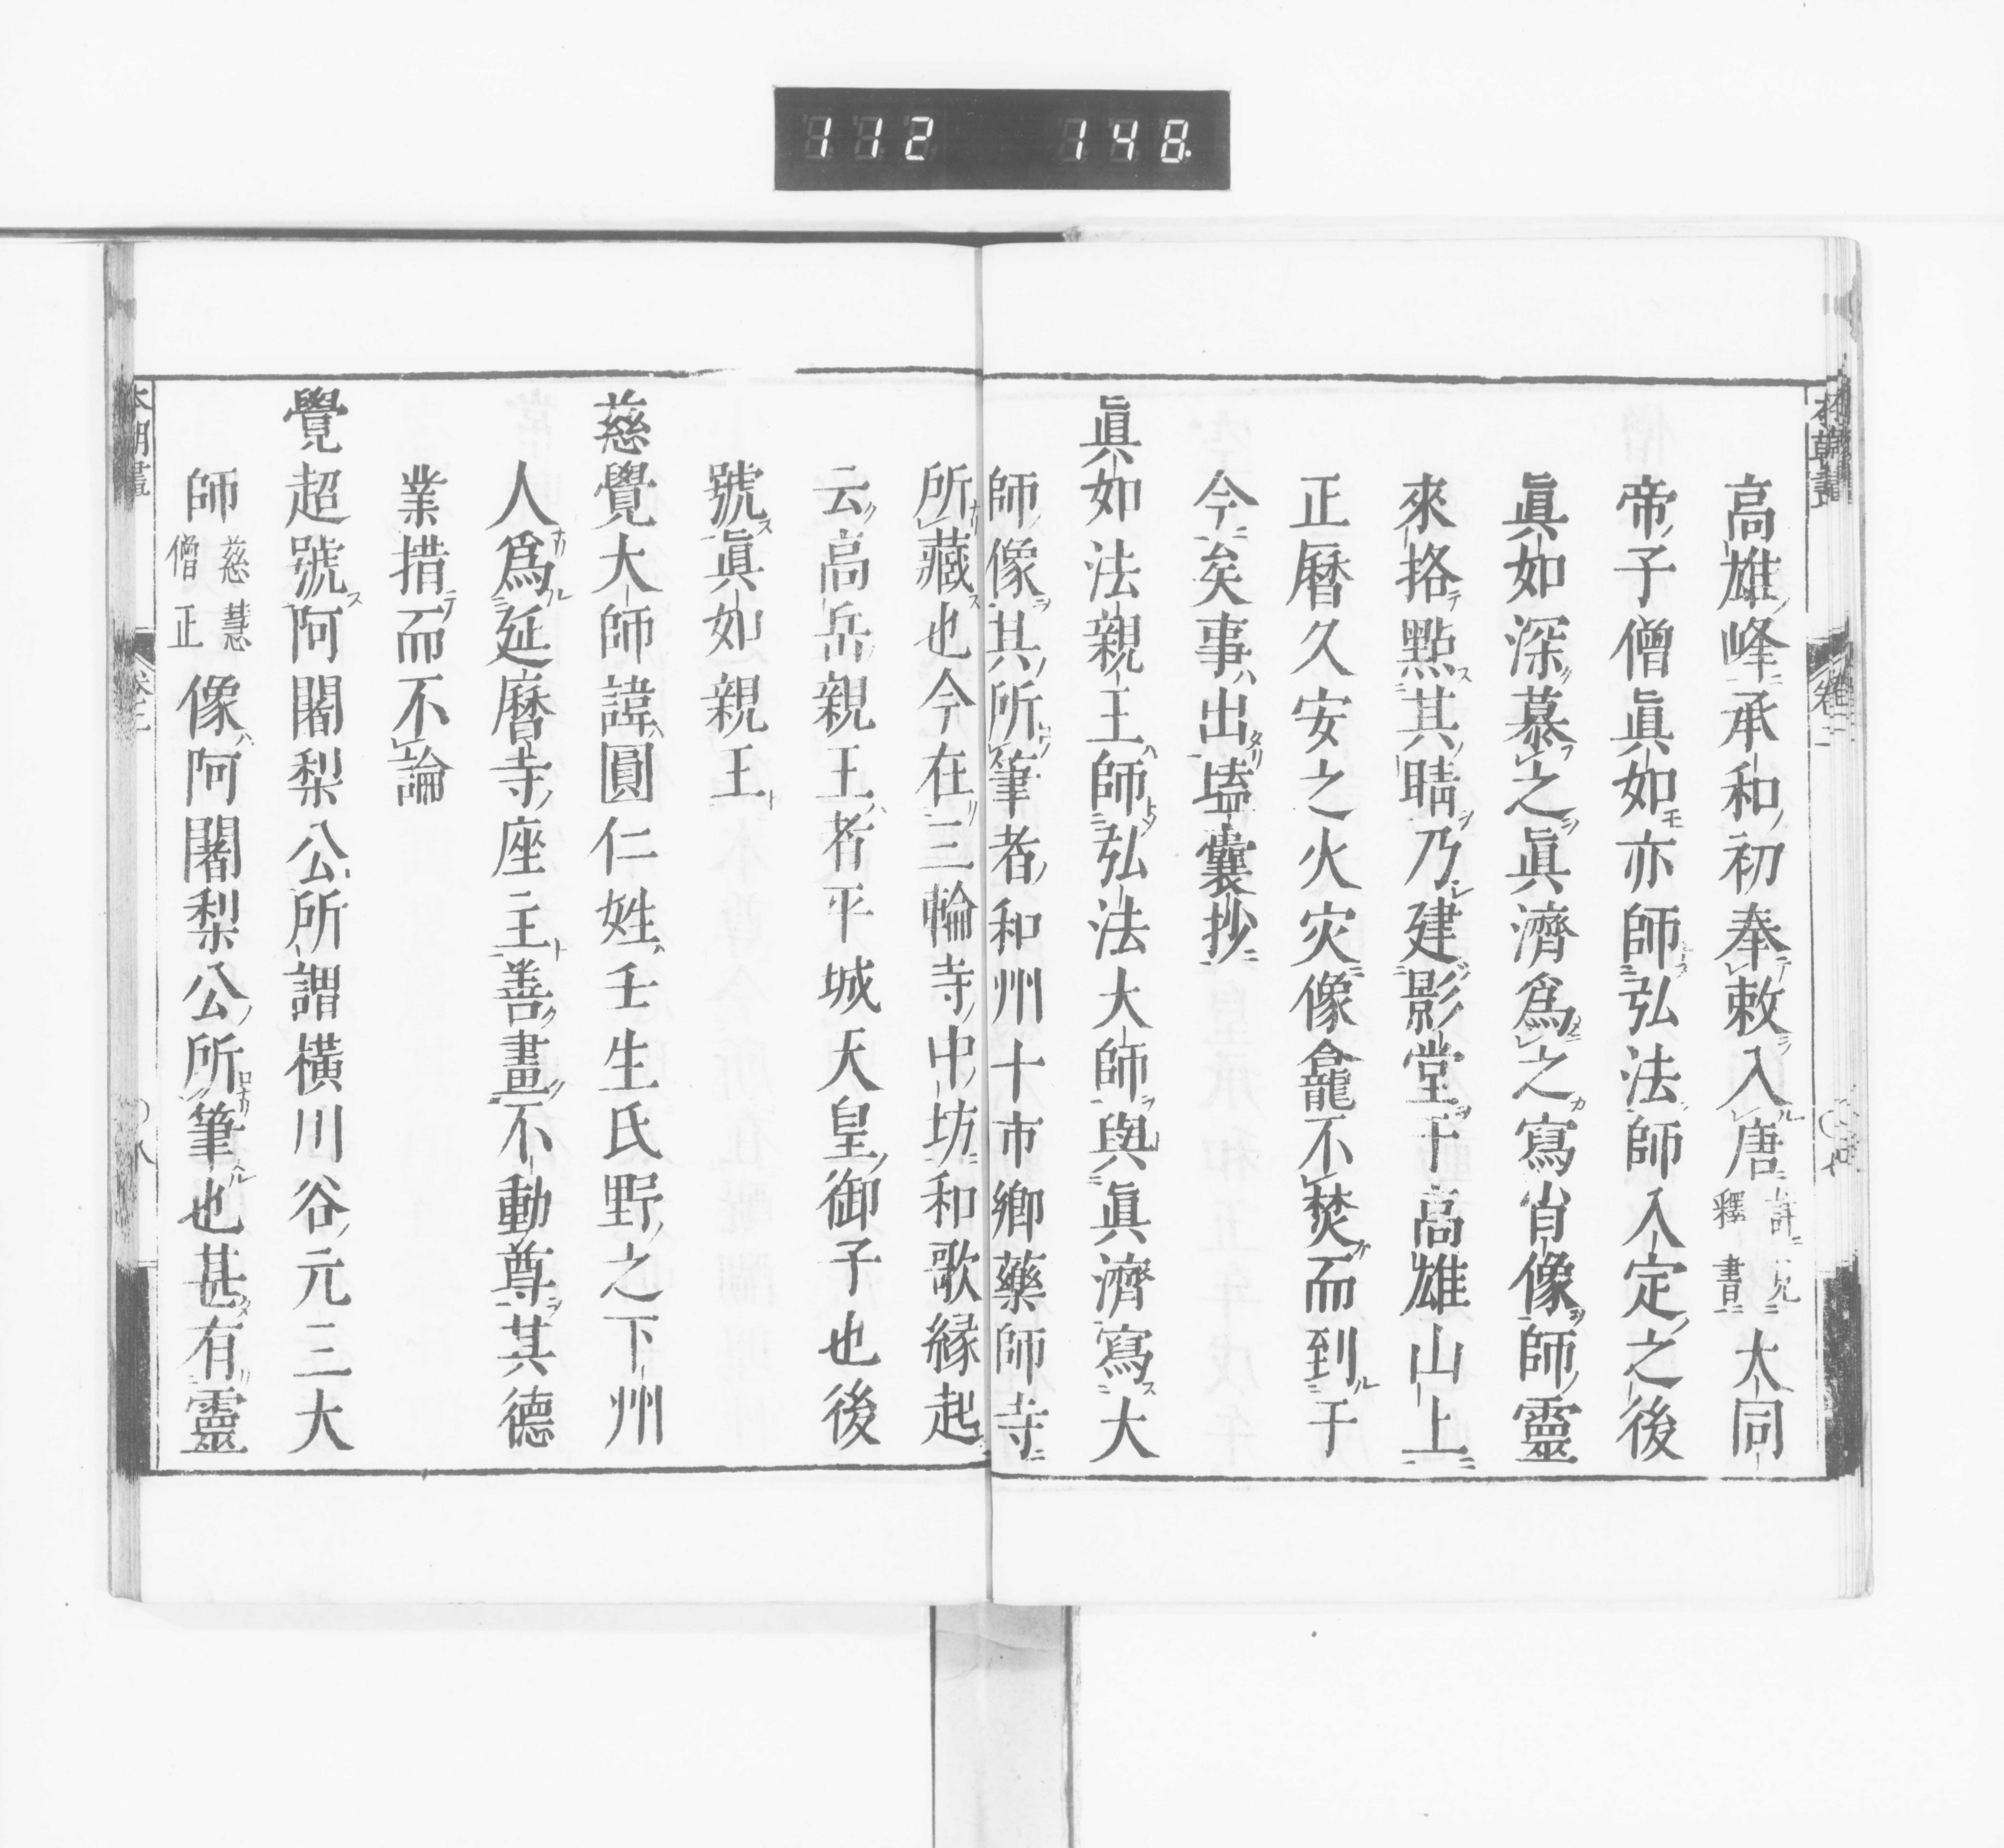 112 148
高雄峰承和初奉敕入唐詳見釋書大同
帝子僧眞如亦師弘法師入定之後
眞如深慕之眞濟爲之寫肖像師靈
來挌點其晴乃建影堂于高雄山上
正曆久安之火灾像龕不焚而到于
今矣事出壒囊抄
眞如法親王師弘法大師與眞濟寫大
師像其所筆者和州十市鄉藥師寺
所藏也今在三輪寺中坊和歌緣起
云高岳親王者平城天皇御子也後
號眞如親王
慈覺大師諱圓仁姓壬生氏野之下州
人爲延曆寺座主善畫不動尊其德
業措而不論
覺超號阿闍梨公所謂橫川谷元三大
師慈慧僧正像阿闍梨公所筆也甚有靈